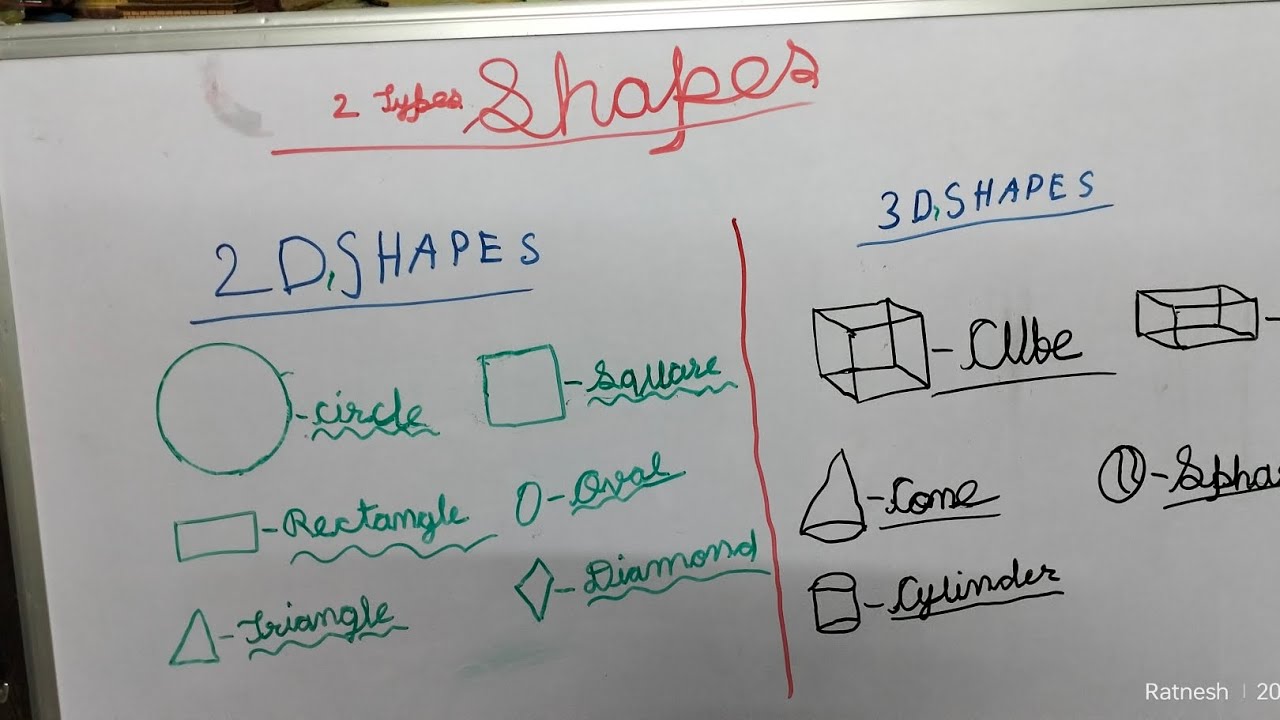 2 Types Shapes
2D, SHAPES
circle
Square
Rectangle
Oval
Triangle
Diamond
3D, SHAPES
Cube
Cone
Cylinder
Ratnesh | 20